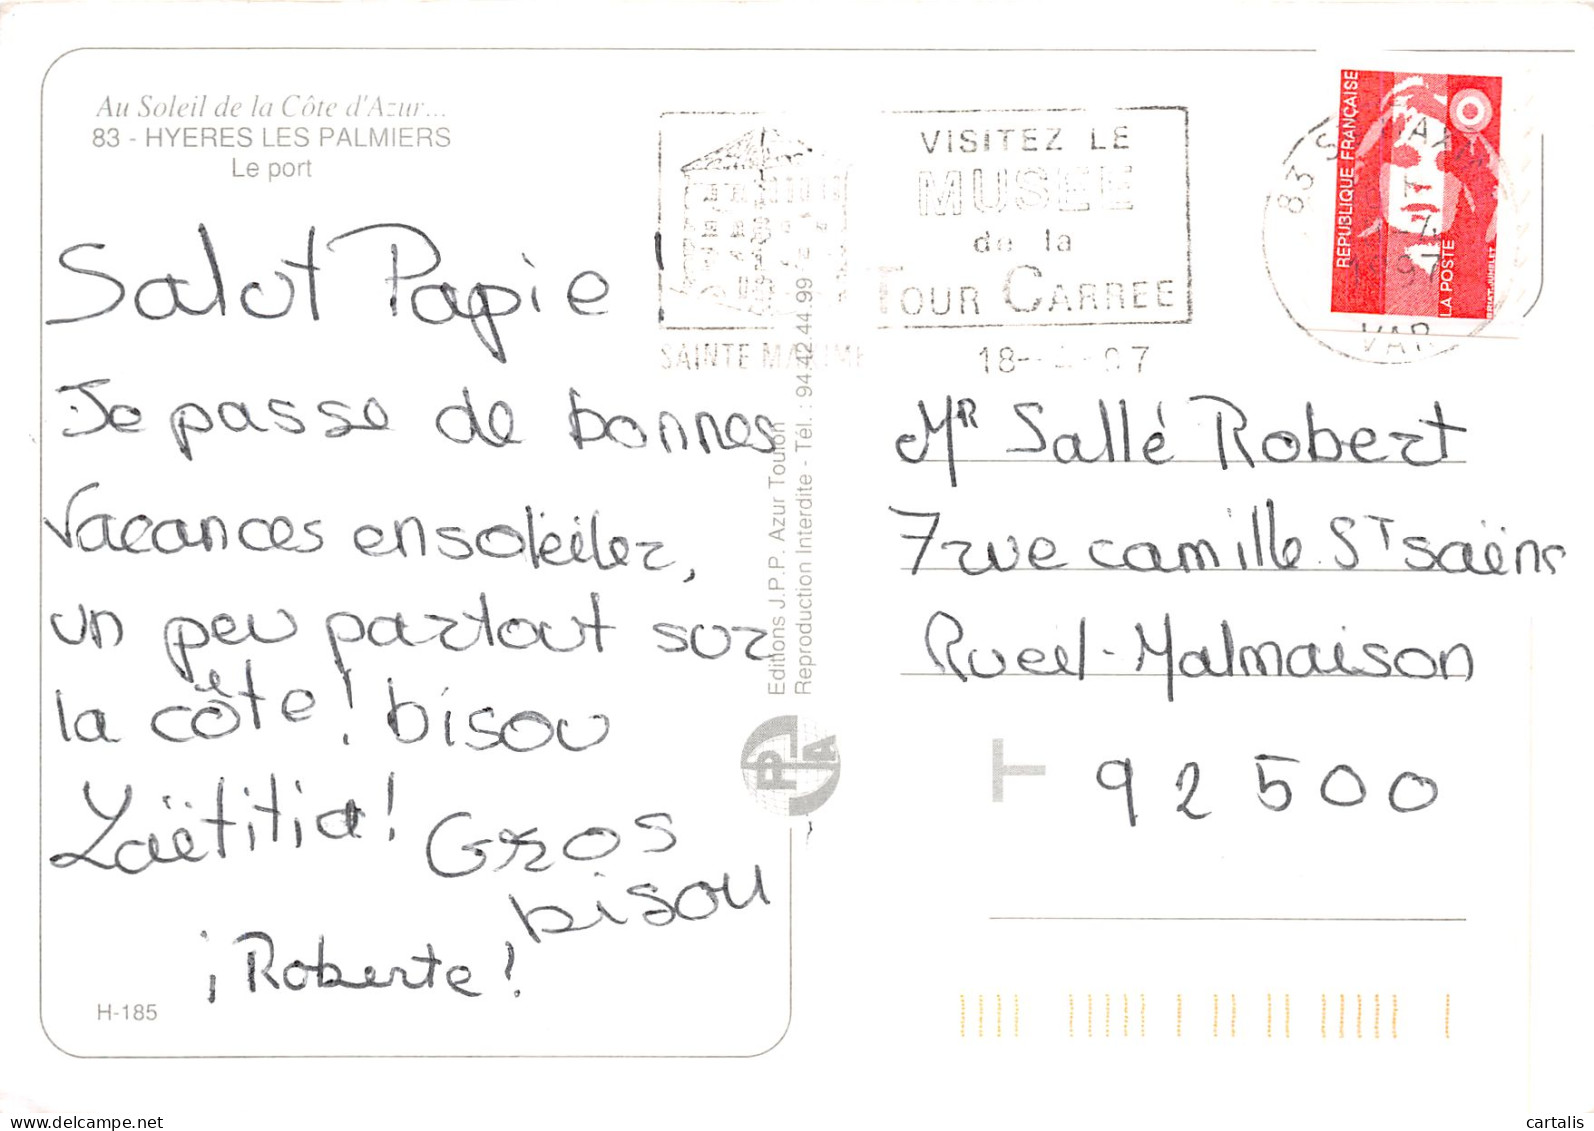 Au Soleil de la Côte d'Azur...
83 - HYERES LES PALMIERS
Le port
Salut Papie
Je passe de bonnes
vacances ensoleiler,
un peu partout sur
la côte! bisou
Laëtitia! Gros
bisou
¡Roberte!
H-185
Editions J.P.P. Azur Toulon
Reproduction Interdite - Tél. : 94.42.44.99
PPA
VISITEZ LE
MUSEE
de la
TOUR CARREE
SAINTE MAXIME
18- - 97
REPUBLIQUE FRANÇAISE
LA POSTE
BRIAT-JUMELET
83 S MAXI
VAR
Mr Sallé Robert
7 rue camille St saëns
Rueil-Malmaison
T
92500
cartalis / www.delcampe.net